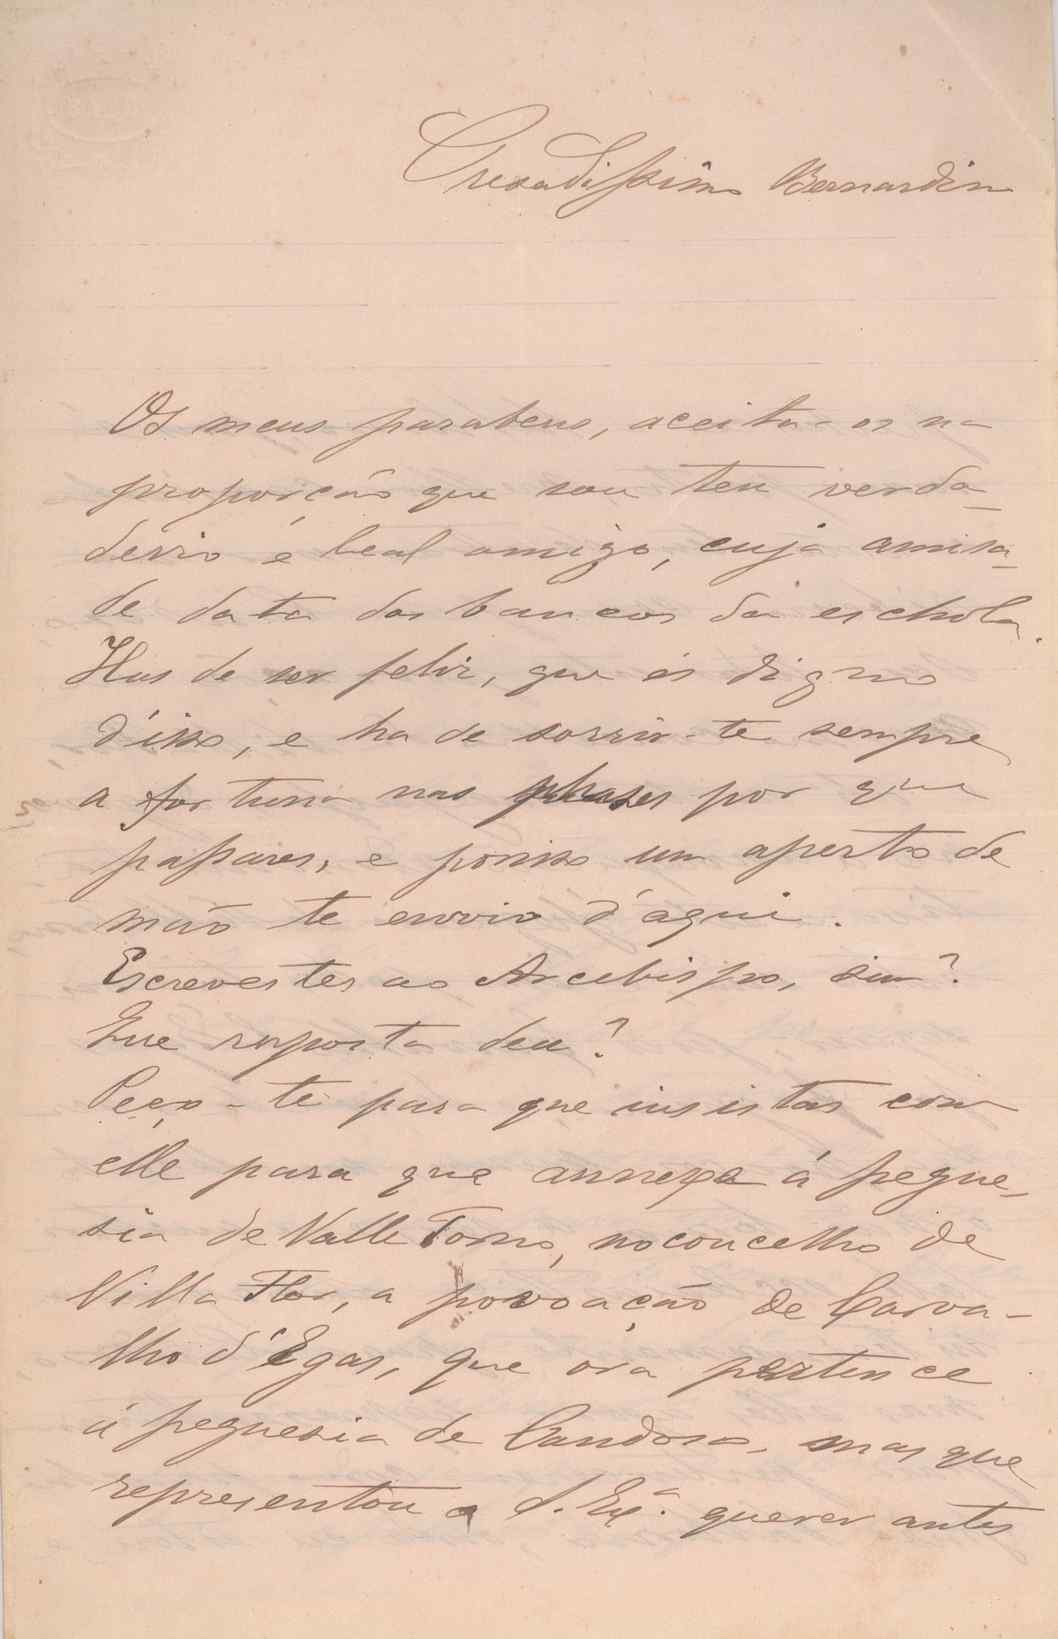 Presadissimo Bernardino
Os meus parabens, aceita-os na
proporção que sou teu verda-
deiro e leal amigo, cuja amisa-
de data dos bancos da eschola.
Has de ser feliz, que és digno
d'isso, e ha de sorrir-te sempre
a fortuna nas phases por que
passares, e porisso um aperto de
mão te envio d'aqui.
Escrevestes ao Arcebispo, sim?
Que resposta deu?
Peço-te para que insistas com
elle para que annexe á fregue-
sia de Valle Torno, no concelho de
Villa Flor, a povoação de Carva-
lho d'Egas, que ora pertence
á freguesia de Candoso, mas que
representou a S. Exª. querer antes